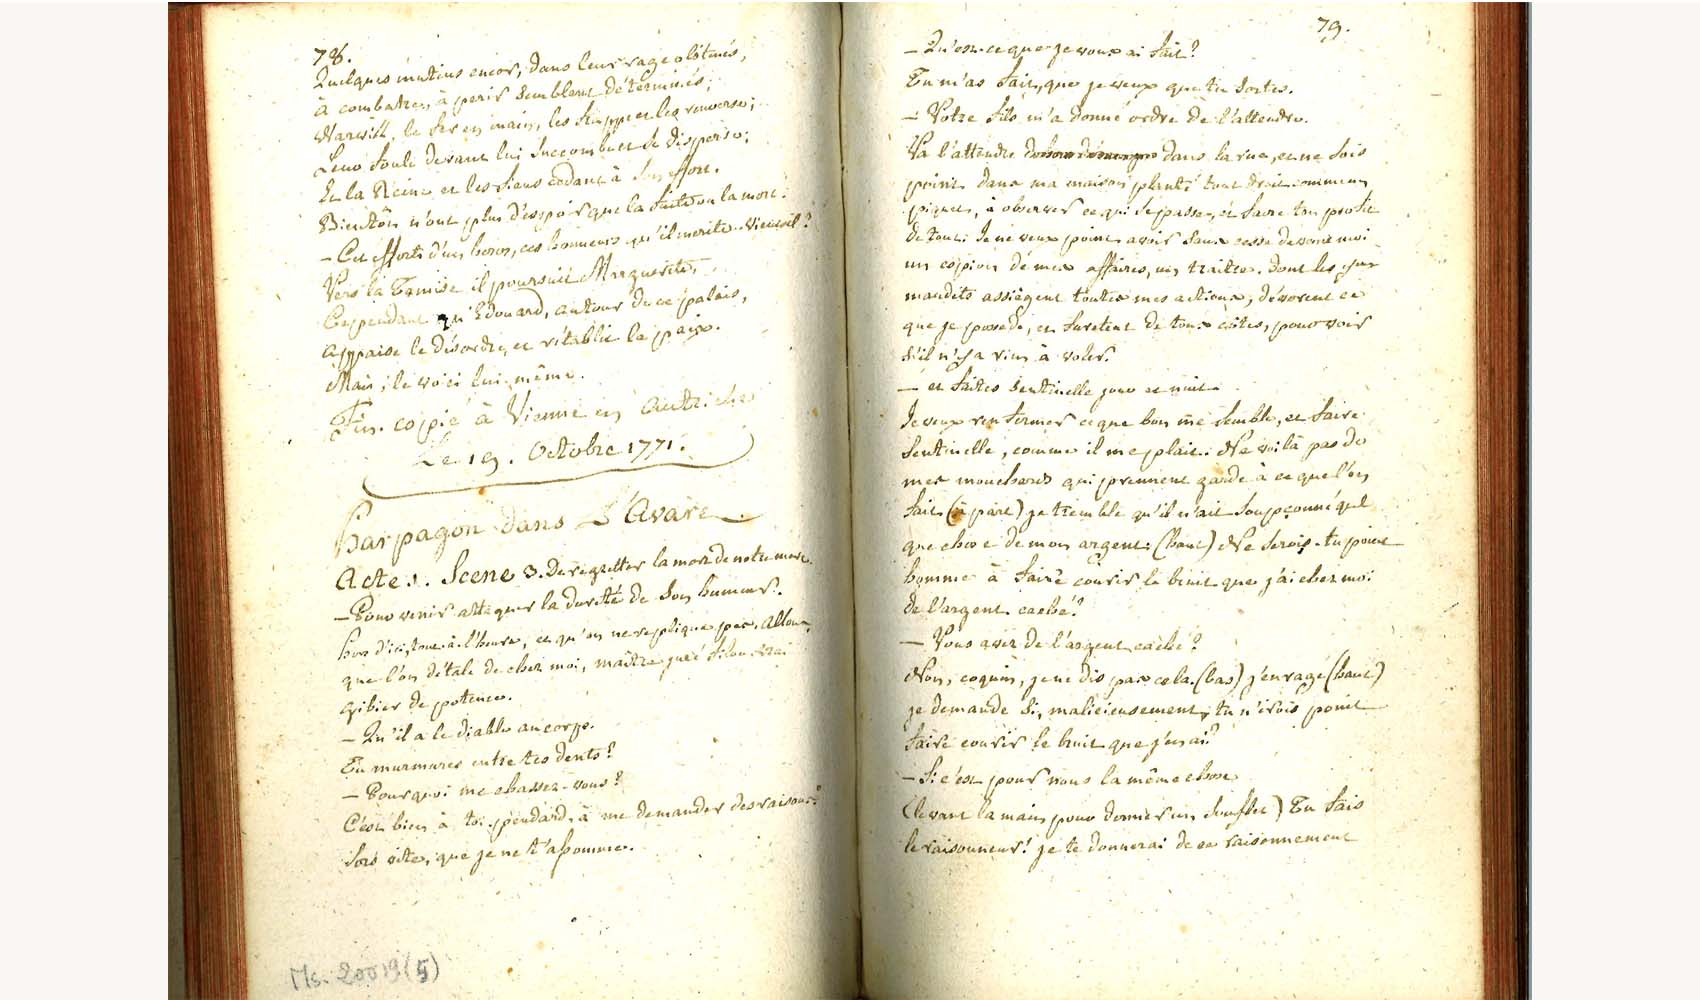 78.
Quelques mutins encor, dans leur rage obstinés,
à combatre, à perir semblent déterminés;
Warwik, le fer en main, les frappe et les renverse;
Leur foule devant lui succombe et se disperse;
Et la Reine et les siens cedant à son effort.
Bientôt n'ont plus d'espoir que la fuite ou la mort.
- Cet effort d'un heros, ces honneurs qu'il merite
Vers la Tamise il poursuit Marguerite,
Cependant qu'Edouard, autour de ce palais,
appaise le désordre, et rétablit la paix.
Mais, le voici lui même.
Fin. copié à Vienne en Autriche
Le 19. Octobre 1771.
Harpagon dans L'Avare.
Acte 1. Scene 3. De regretter la mort de notre mere.
- Pour venir attaquer la dureté de son humeur.
hors d'ici tout à l'heure, et qu'on ne replique pas. Allons,
que l'on détale de chez moi, maître juré filou, vrai
gibier de potence.
- Qu'il a le diable au corps.
Tu murmures entre tes dents?
- Pourquoi me chassez-vous?
C'est bien à toi, pendard, à me demander des raisons?
sors vite, que je ne t'assomme.
Ms. 20019(5)
79.
- Qu'est-ce que je vous ai fait?
Tu m'as fait, que je veux que tu sortes.
- Votre fils m'a donné ordre de l'attendre.
Va l'attendre dans la rue, et ne sois
point dans ma maison planté tout droit comme un
piquet, à observer ce qui se passe, et faire ton profit
de tout. Je ne veux point avoir sans cesse devant moi
un espion de mes affaires, un traitre. Dont les yeux
maudits assiègent toutes mes actions, dévorent ce
que je possede, et furetent de tous côtés, pour voir
s'il n'y a rien à voler.
- et faites sentinelle jour et nuit.
Je veux renfermer ce que bon me semble, et faire
sentinelle, comme il me plait. Ne voilà pas de
mes mouchards qui prennent garde à ce que l'on
fait (à part) je tremble qu'il n'ait soupçonné quel
que chose de mon argent. (haut) Ne serois-tu point
homme à faire courir le bruit que j'ai chez moi
de l'argent caché?
- Vous avez de l'argent caché?
Non, coquin, je ne dis pas cela. (bas) j'enrage (haut)
je demande si, malicieusement, tu n'irois point
faire courir le bruit que j'en ai?
- Si c'est pour nous la même chose
(levant la main pour donner un soufflet) Tu fais
le raisonneur! je te donnerai de ce raisonnement